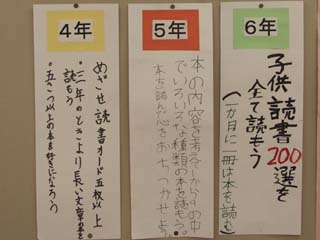 4年
めざせ読書カード五枚以上
・三年のときより長い文章の本を
読もう
・五さつ以上の本を好きになろう
5年
本の内容を考え1から9の中
でいろいろな種類の本を読もう。
本を読んで心をおちつかせよう。
6年
子供読書200選を
全て読もう
(一か月に一冊は本を読む)